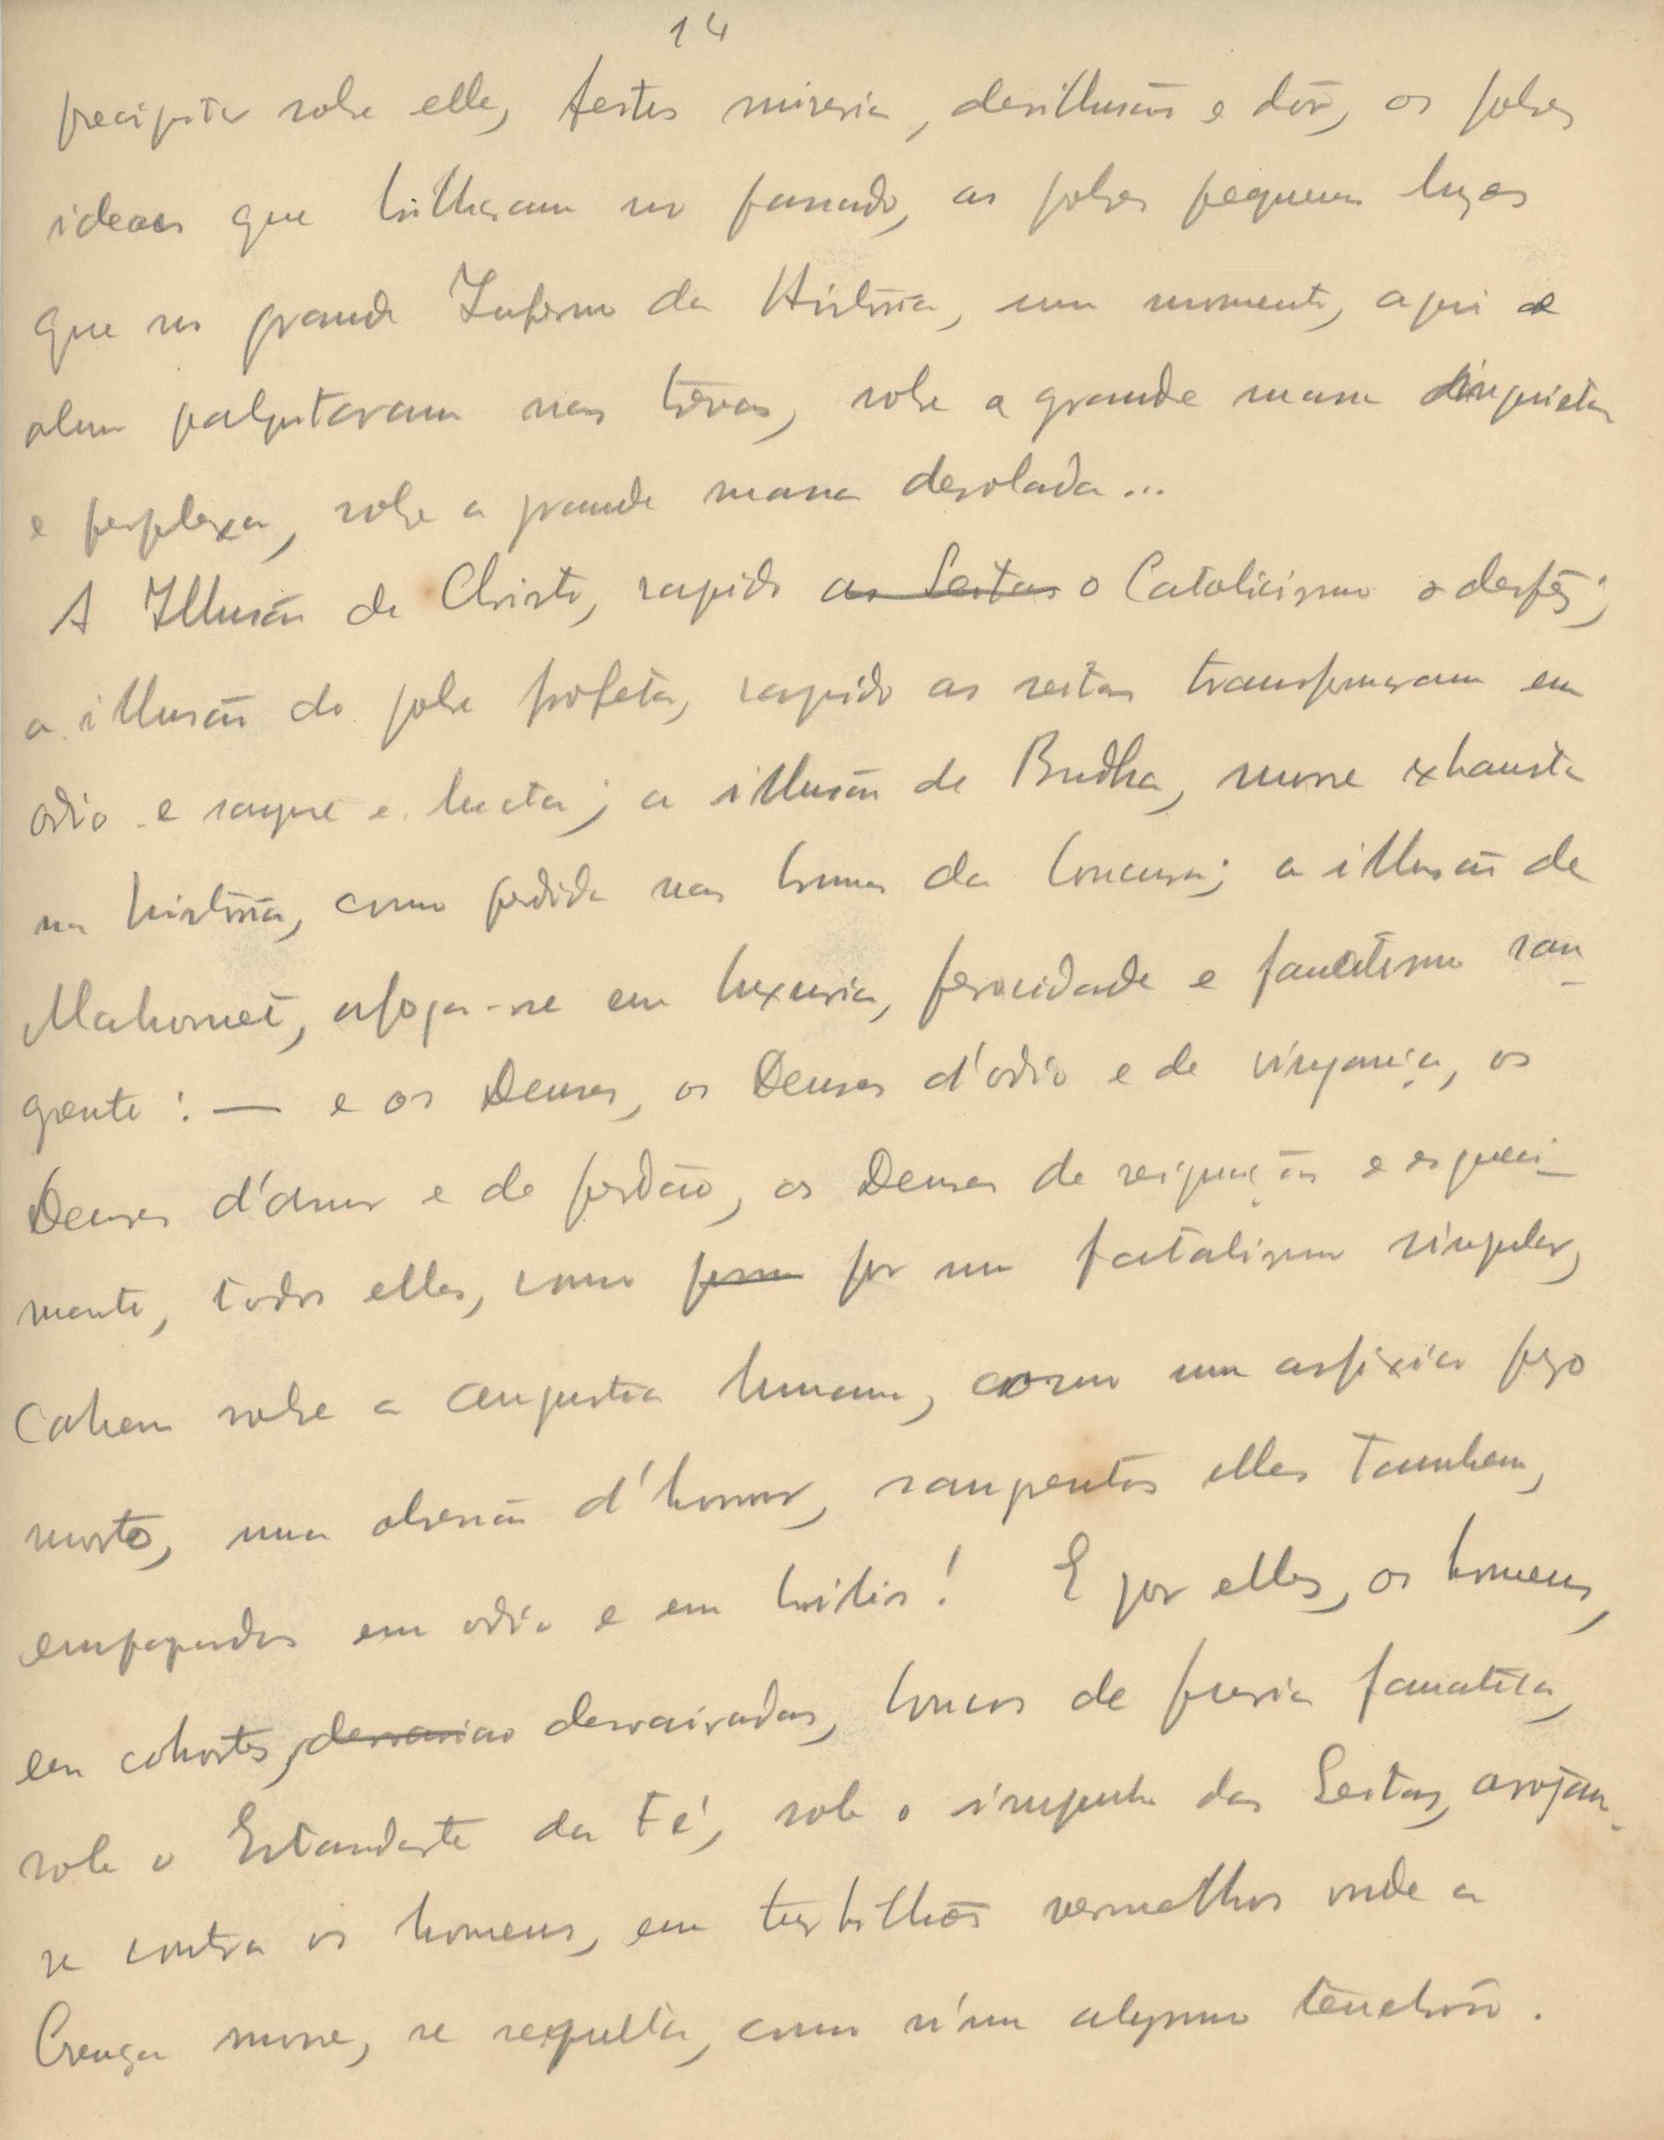 14
precipita sobre elle, destes miseria, desillusão e dôr, os pobres
ideaes que brilharam no passado, as pobres pequenas luzes
que no grande Inferno da Historia, um momento, aqui e
alem palpitaram nas trevas, sobre a grande massa inquieta
e perplexa, sobre a grande massa desolada...
A Illusão de Christo, rapido as Seitas o Catolicismo a desfez;
a illusão do pobre profeta, rapido as seitas transformaram em
odio e sangue e lucta; a illusão de Budha, morre exhausta
na historia, como perdida nas brumas da loucura; a illusão de
Mahomet, afoga-se em luxuria, ferocidade e fanatismo san-
grento: — e os Deuses, os Deuses d'odio e de vingança, os
Deuses d'amor e de perdão, os Deuses de resignação e esqueci-
mento, todos elles, como por um fatalismo singular,
cahem sobre a angustia humana, como um asfixiar pezo
morto, uma obsessão d'horror, sangrentos elles tambem,
empapados em odio e em bilis! E por elles, os homens,
em cohortes, desvairadas, loucos de furia fanatica,
sob o Estandarte da Fé, sob o impulso das Seitas, arrojam-
se contra os homens, em turbilhões vermelhos onde a
Crença morre, se sepulta, como n'um abysmo tenebroso.